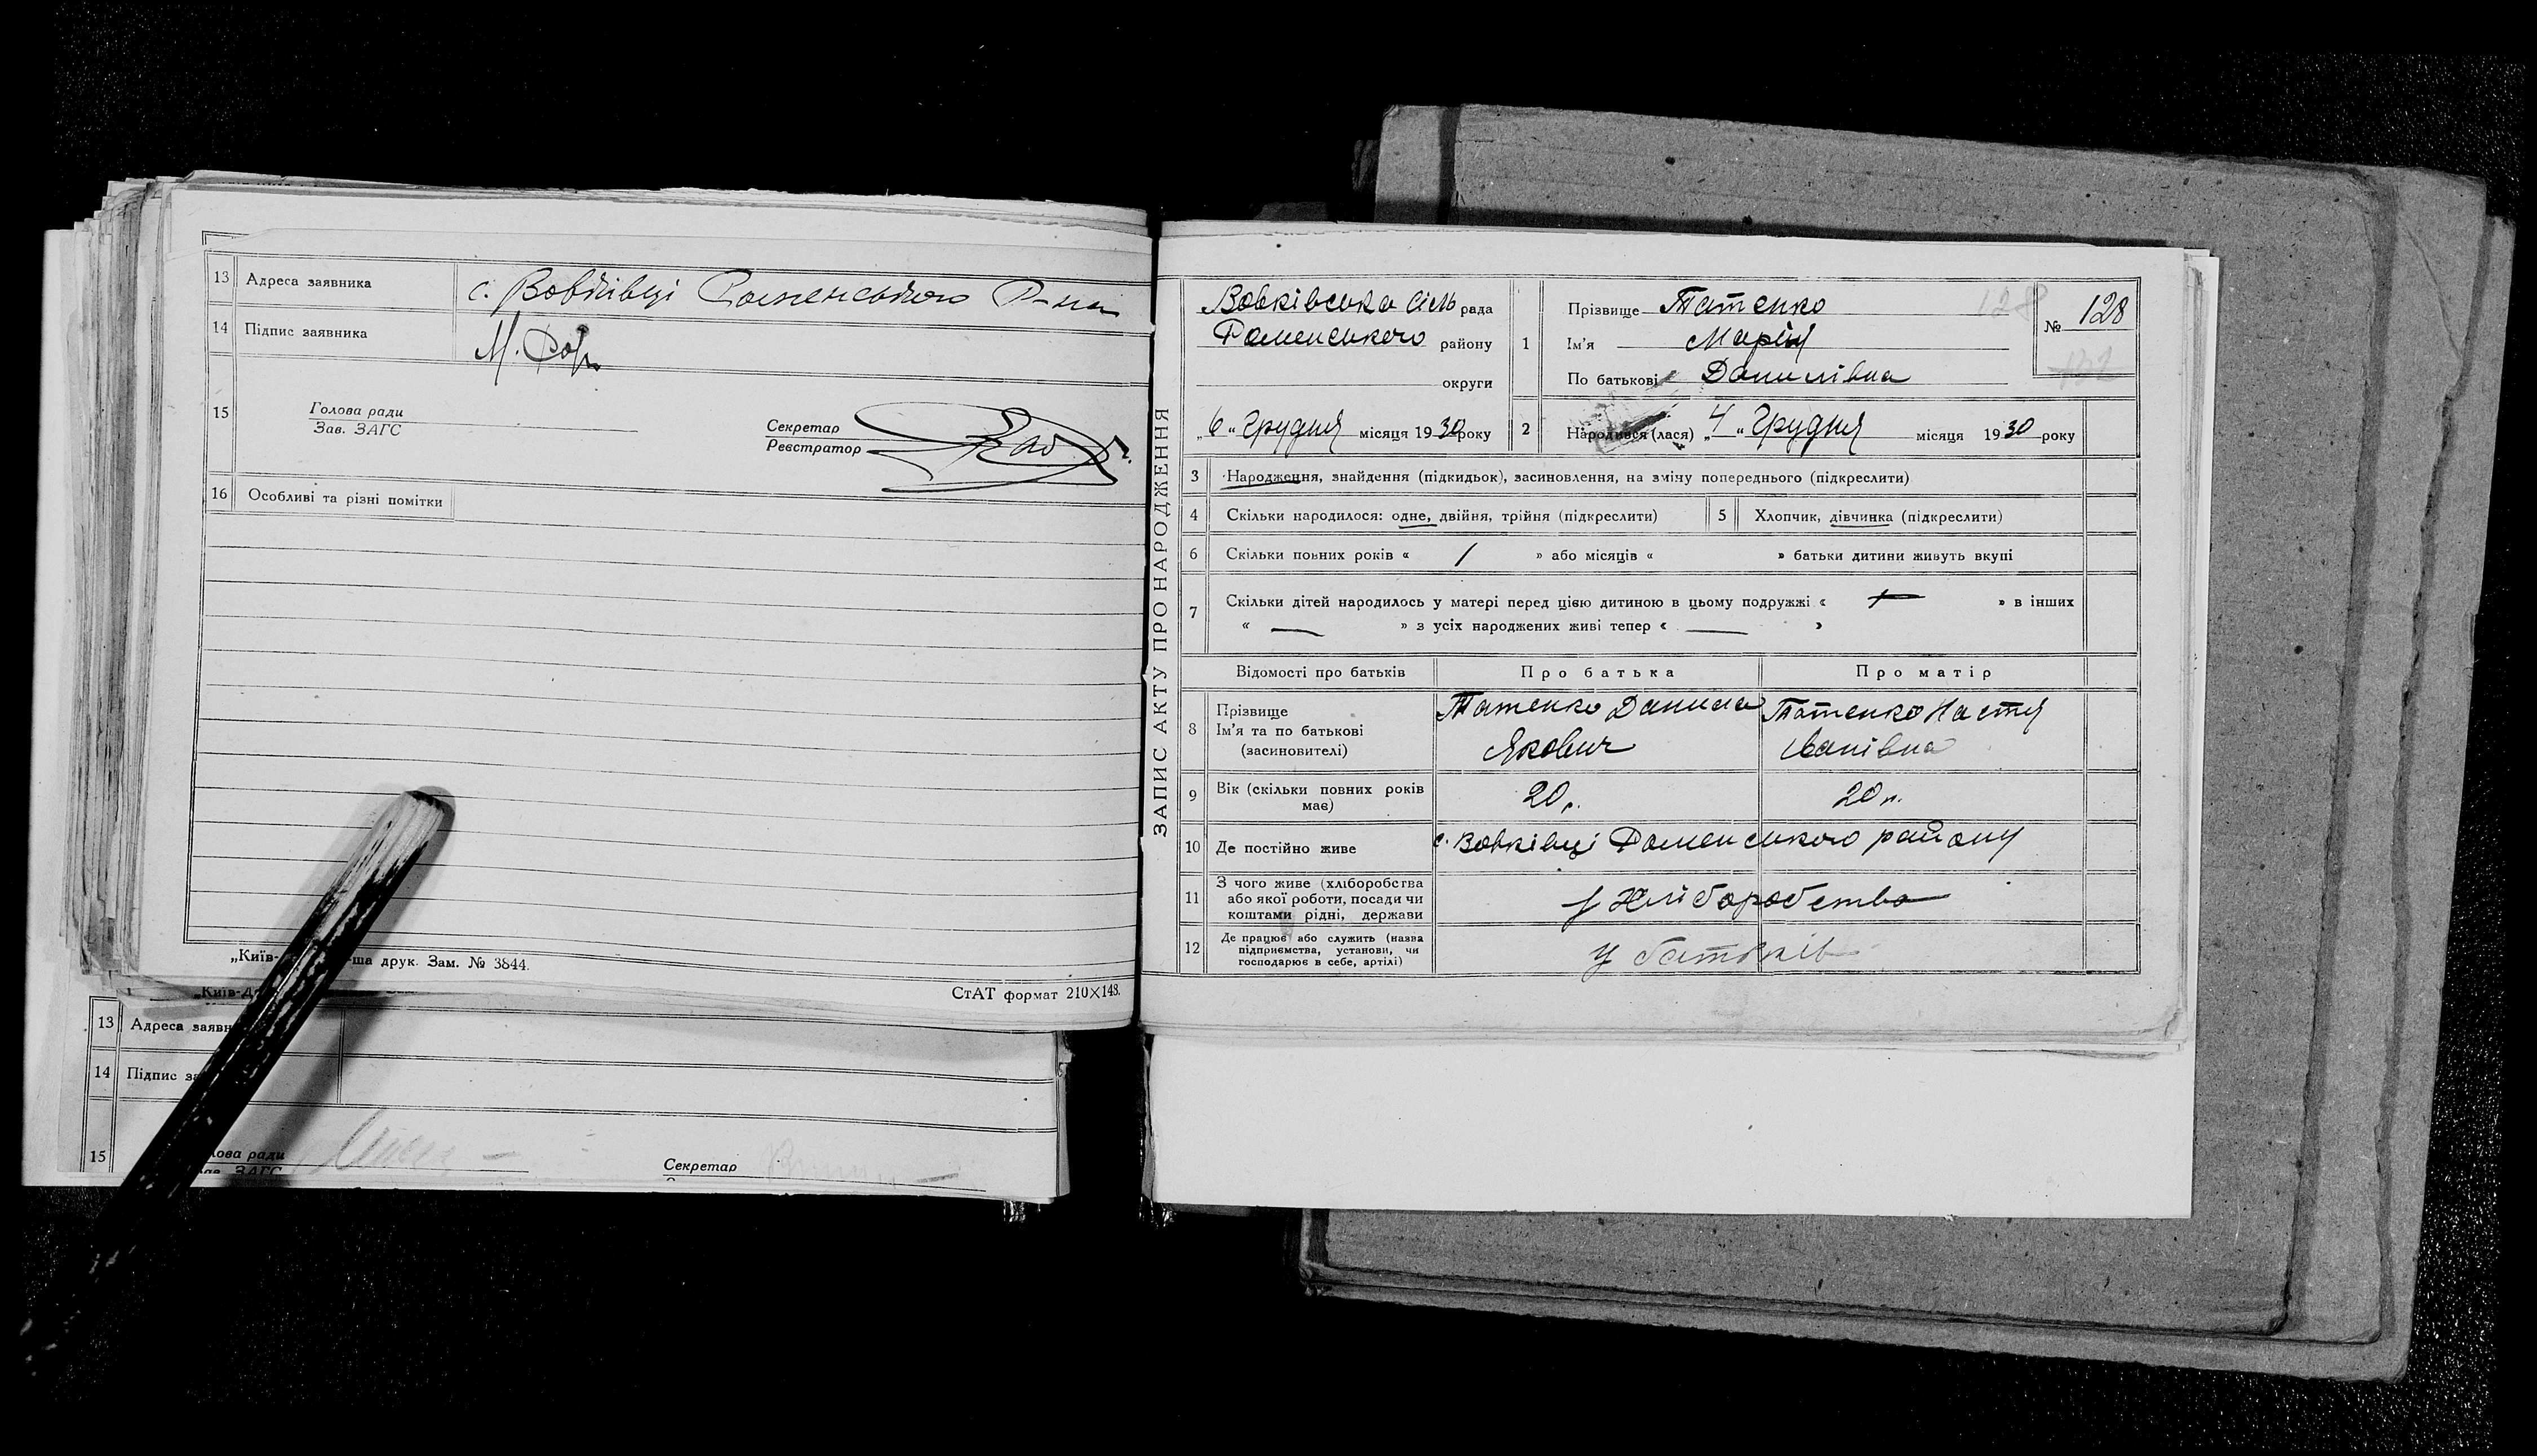 13 Адреса заявника с. Вовківці Роменського Р-на
14 Підпис заявника
15 Голова ради
Зав. ЗАГС
Секретар
Реєстратор
16 Особливі та різні помітки
„Київ-
ша друк. Зам. № 3844.
СтАТ формат 210×148.
„Київ-Д
13 Адреса заявн
14 Підпис за
15
лова ради
ав. ЗАГС
Секретар
ЗАПИС АКТУ ПРО НАРОДЖЕННЯ
Вовківська сіль рада
Роменського району
округи
„6“ Грудня місяця 1930 року
1 Прізвище Татенко
Ім'я Марія
По батькові Данилівна
128
№ 128
132
2 Народився (лася) „4“ Грудня місяця 1930 року
3 Народження, знайдення (підкидьок), засиновлення, на зміну попереднього (підкреслити)
4 Скільки народилося: одне, двійня, трійня (підкреслити) 5 Хлопчик, дівчинка (підкреслити)
6 Скільки повних років « 1 » або місяців « » батьки дитини живуть вкупі
7 Скільки дітей народилось у матері перед цією дитиною в цьому подружжі « » в інших
« — » з усіх народжених живі тепер « — »
Відомості про батьків Про батька Про матір
8 Прізвище
Ім'я та по батькові
(засиновителі)
Татенко Данила
Якович
Татенко Настя
Іванівна
9 Вік (скільки повних років
має)
20 р. 20 р.
10 Де постійно живе с. Вовківці Роменського району
11 З чого живе (хліборобства
або якої роботи, посади чи
коштами рідні, держави
з Хліборобства
12 Де працює або служить (назва
підприємства, установи, чи
господарює в себе, артілі)
у батьків